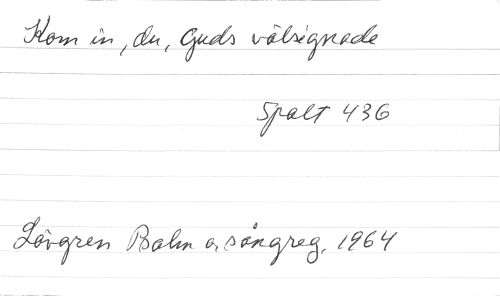 Kom in, du, Guds välsignade
Spalt 436
Lövgren Psalm o. sångreg. 1964